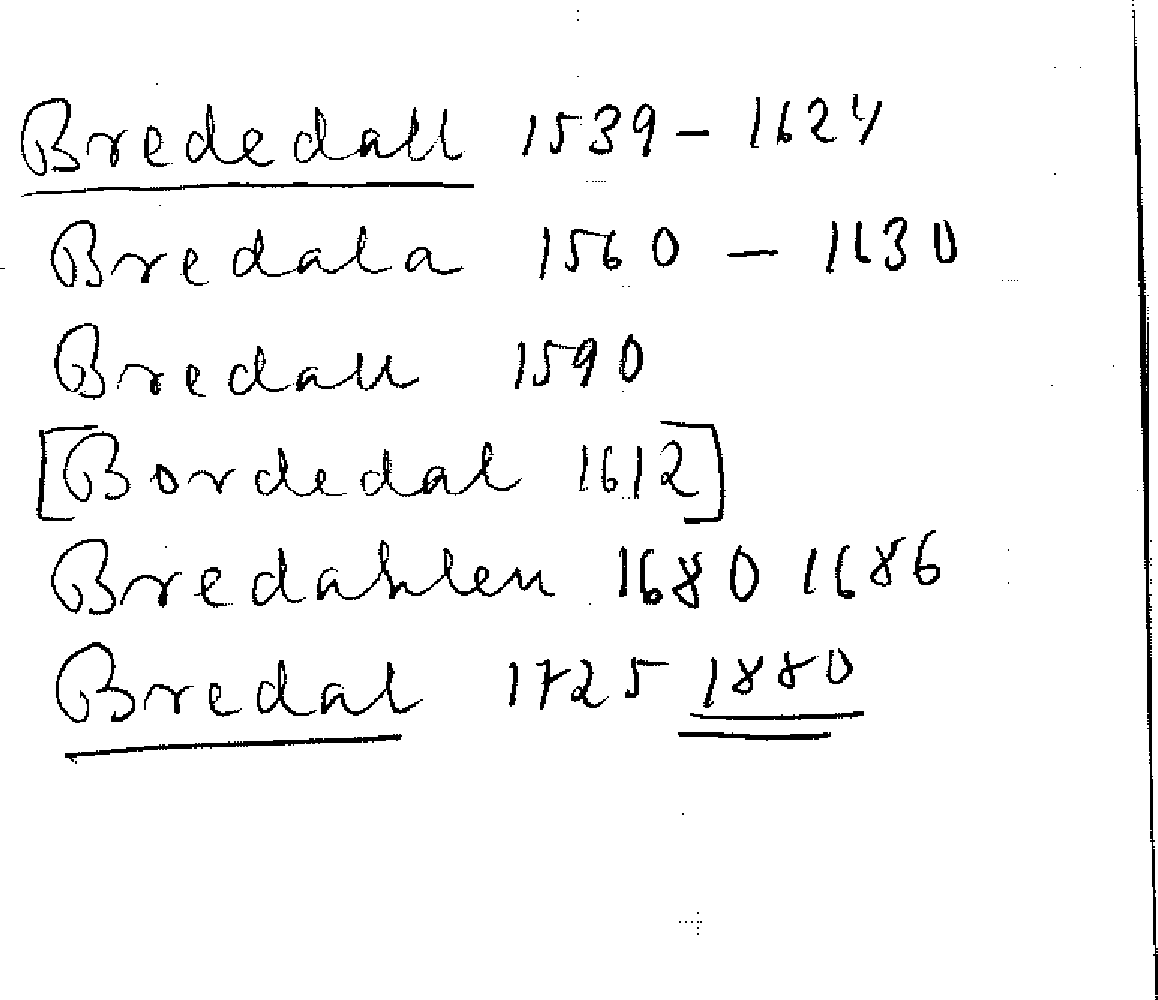 Brededall 1539 – 1624
Bredala 1560 – 1630
Bredall 1590
[Bordedal 1612]
Bredahlen 1680 1686
Bredal 1725 1880